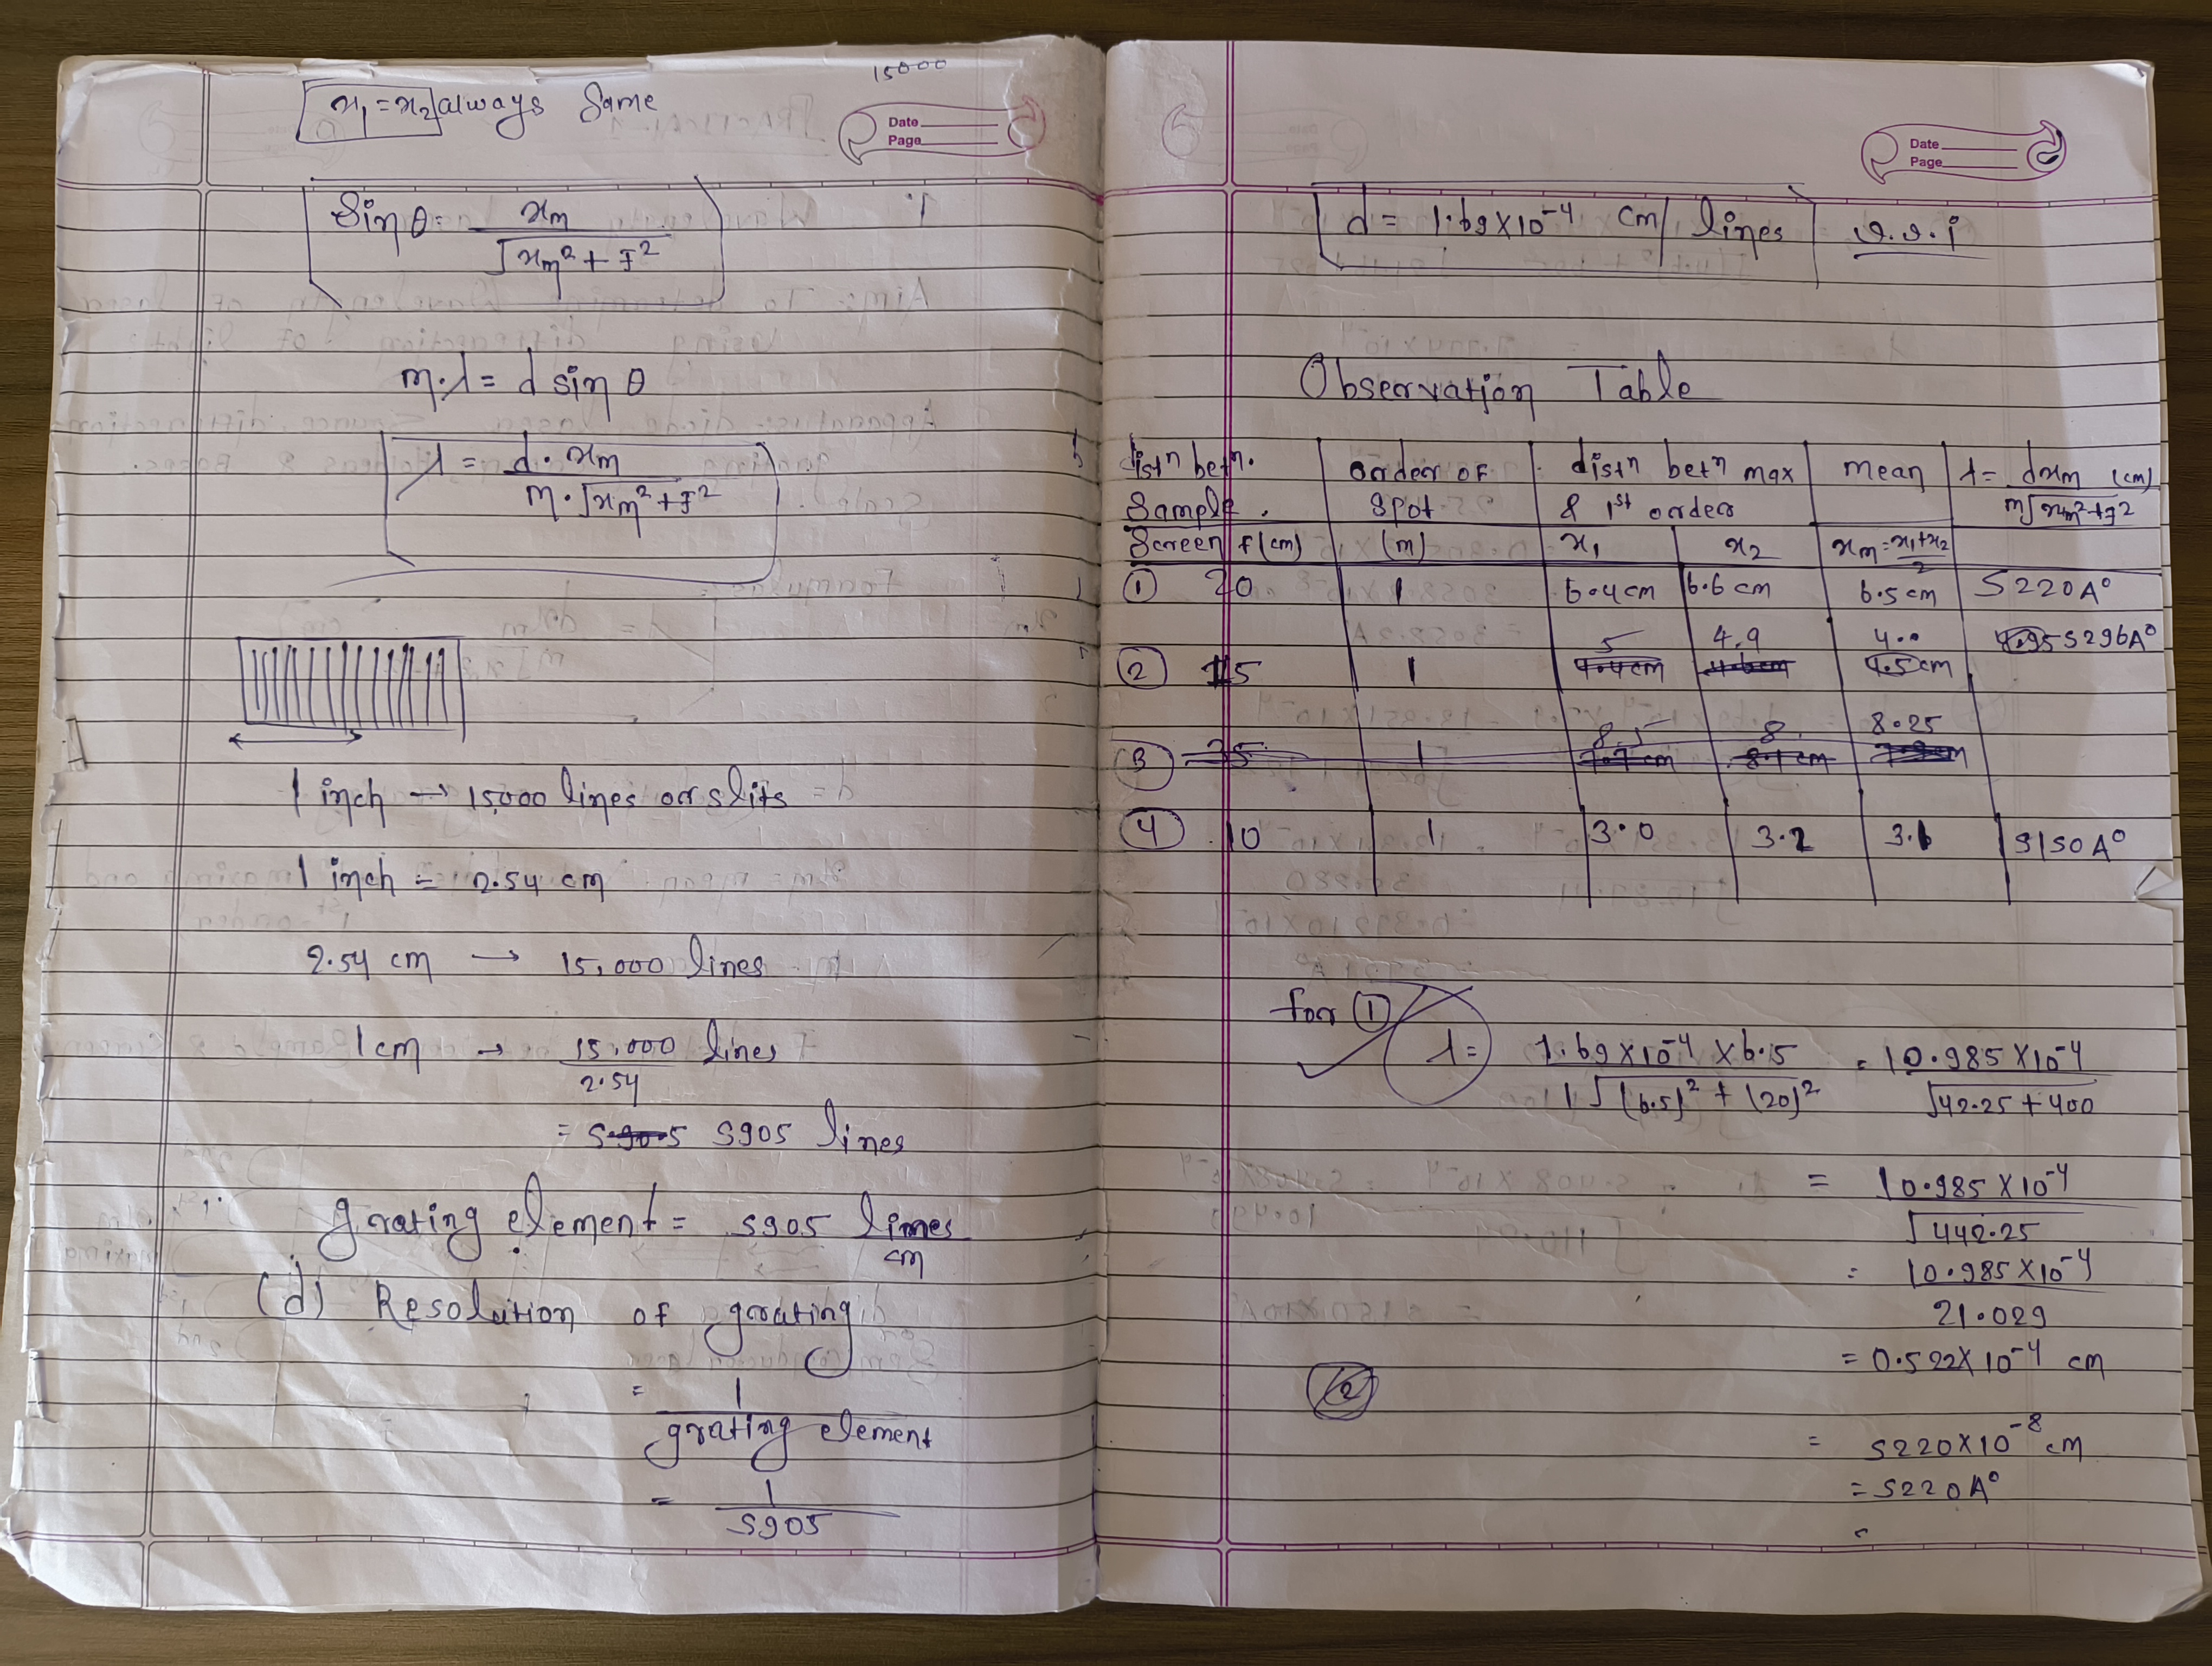 15000
x₁ = x₂ always same
Date
Page
Sin θ = xm / √(xm² + f²)
m·λ = d sin θ
λ = d·xm / m·√(xm² + f²)
1 inch → 15000 lines or slits
1 inch = 2.54 cm
2.54 cm → 15,000 lines
1 cm → 15,000 / 2.54 lines
= 5905 lines
grating element = 5905 lines / cm
(d) Resolution of grating
= 1 / grating element
= 1 / 5905
Date
Page
d = 1.69 × 10⁻⁴ cm / lines v.v.i
Observation Table
distⁿ betⁿ. order of distⁿ betⁿ max mean λ = dxm (cm) / m√(xm² + f²)
Sample. Spot & 1st order
Screen f (cm) (m) x₁ x₂ xm = x₁ + x₂ / 2
① 20 1 6.4 cm 6.6 cm 6.5 cm 5220 A°
5 4.9 4.95 5296 A°
② 15 1 4.4 cm 4.6 cm 4.5 cm
8.5 8. 8.25
③ 25 1 7.7 cm 8.1 cm
④ 10 1 3.0 3.2 3.1 5150 A°
for ①
λ = 1.69 × 10⁻⁴ × 6.5 / 1√((6.5)² + (20)²) = 10.985 × 10⁻⁴ / √(42.25 + 400)
= 10.985 × 10⁻⁴ / √442.25
= 10.985 × 10⁻⁴ / 21.029
= 0.522 × 10⁻⁴ cm
②
= 5220 × 10⁻⁸ cm
= 5220 A°